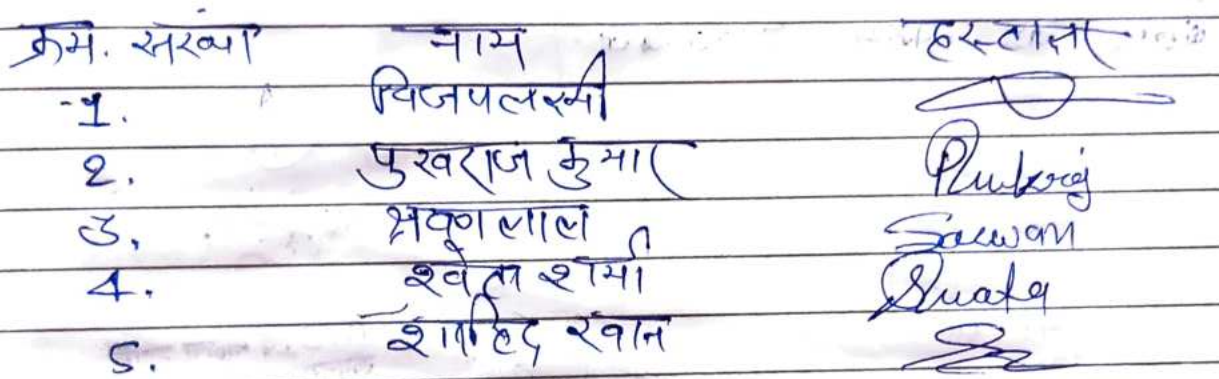 क्रम. संख्या नाम हस्ताक्षर
1. विजयलक्ष्मी
2. पुखराज कुमार Pukhraj
3. श्रवणलाल Sarwan
4. श्वेता शर्मा Swata
5. शाहिद खान